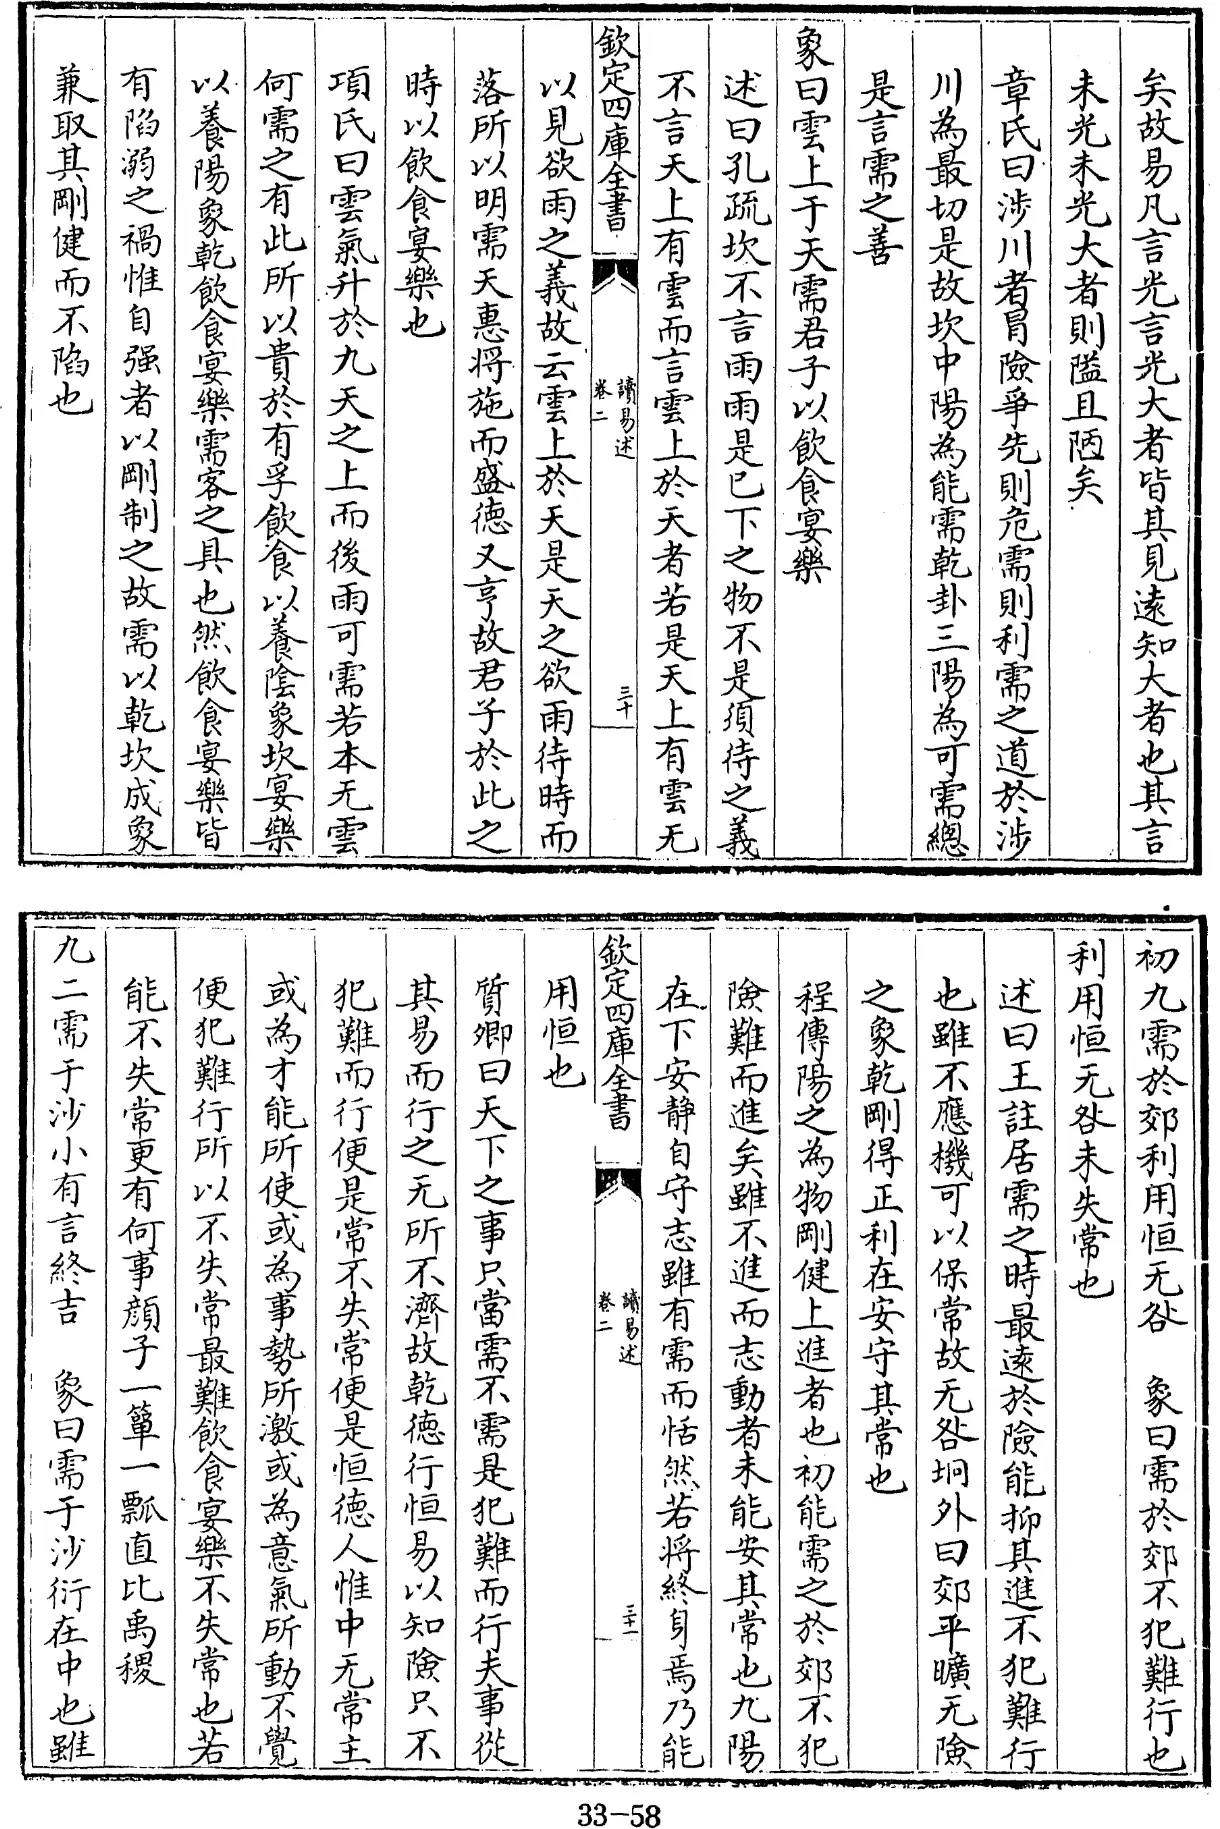 矣故易凡言光言光大者皆其見遠知大者也其言
未光未光大者則隘且陋矣
章氏曰涉川者冒險爭先則危需則利需之道於涉
川為最切是故坎中陽為能需乾卦三陽為可需總
是言需之善
象曰雲上于天需君子以飲食宴樂
述曰孔疏坎不言雨雨是已下之物不是須待之義
不言天上有雲而言雲上於天者若是天上有雲无
欽定四庫全書
讀易述
卷二
三十
以見欲雨之義故云雲上於天是天之欲雨待時而
落所以明需天惠將施而盛德又亨故君子於此之
時以飲食宴樂也
項氏曰雲氣升於九天之上而後雨可需若本无雲
何需之有此所以貴於有孚飲食以養陰象坎宴樂
以養陽象乾飲食宴樂需客之具也然飲食宴樂皆
有陷溺之禍惟自强者以剛制之故需以乾坎成象
兼取其剛健而不陷也
初九需於郊利用恒无咎 象曰需於郊不犯難行也
利用恒无咎未失常也
述曰王註居需之時最遠於險能抑其進不犯難行
也雖不應機可以保常故无咎坰外曰郊平曠无險
之象乾剛得正利在安守其常也
程傳陽之為物剛健上進者也初能需之於郊不犯
險難而進矣雖不進而志動者未能安其常也九陽
在下安靜自守志雖有需而恬然若將終身焉乃能
欽定四庫全書
讀易述
卷二
三十一
用恒也
質卿曰天下之事只當需不需是犯難而行夫事從
其易而行之无所不濟故乾德行恒易以知險只不
犯難而行便是常不失常便是恒德人惟中无常主
或為才能所使或為事勢所激或為意氣所動不覺
便犯難行所以不失常最難飲食宴樂不失常也若
能不失常更有何事顏子一簞一瓢直比禹稷
九二需于沙小有言終吉 象曰需于沙衍在中也雖
33-58